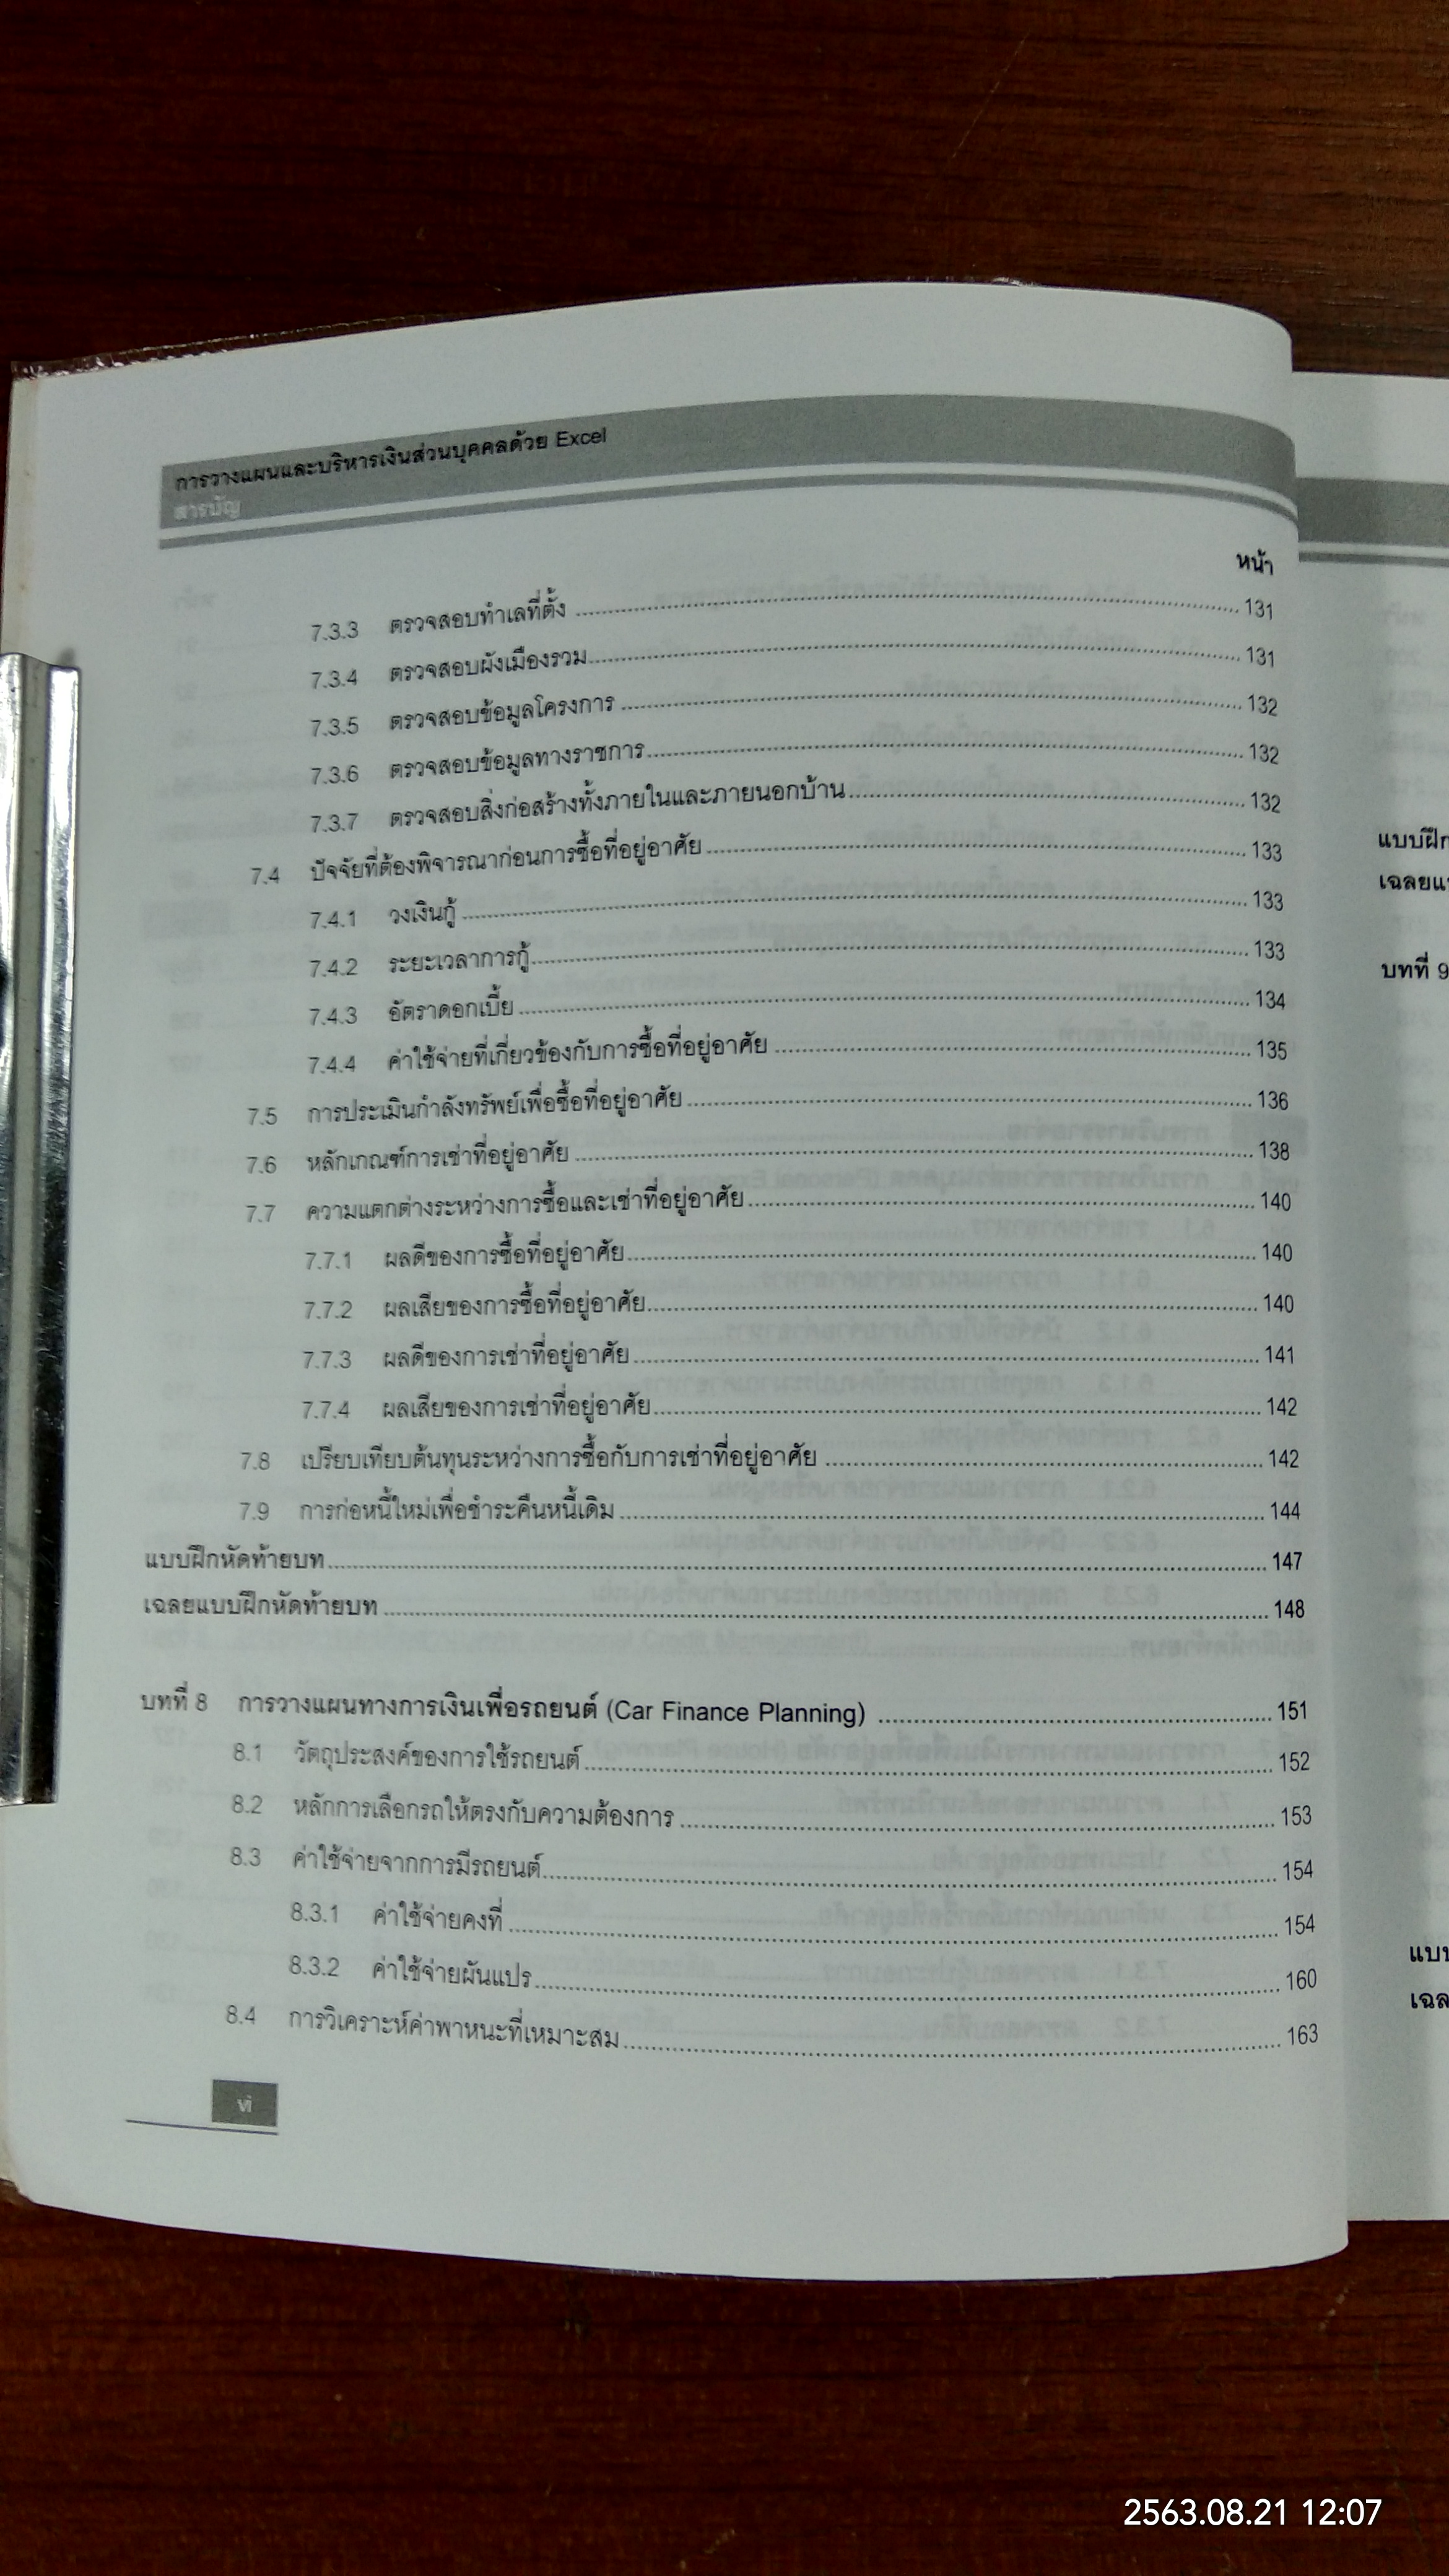 การวางแผนและบริหารเงินส่วนบุคคลด้วย Excel
สารบัญ
หน้า
7.3.3 ตรวจสอบทำเลที่ตั้ง ........ 131
7.3.4 ตรวจสอบผังเมืองรวม ........ 131
7.3.5 ตรวจสอบข้อมูลโครงการ ........ 132
7.3.6 ตรวจสอบข้อมูลทางราชการ ........ 132
7.3.7 ตรวจสอบสิ่งก่อสร้างทั้งภายในและภายนอกบ้าน ........ 132
7.4 ปัจจัยที่ต้องพิจารณาก่อนการซื้อที่อยู่อาศัย ........ 133
7.4.1 วงเงินกู้ ........ 133
7.4.2 ระยะเวลาการกู้ ........ 133
7.4.3 อัตราดอกเบี้ย ........ 134
7.4.4 ค่าใช้จ่ายที่เกี่ยวข้องกับการซื้อที่อยู่อาศัย ........ 135
7.5 การประเมินกำลังทรัพย์เพื่อซื้อที่อยู่อาศัย ........ 136
7.6 หลักเกณฑ์การเช่าที่อยู่อาศัย ........ 138
7.7 ความแตกต่างระหว่างการซื้อและเช่าที่อยู่อาศัย ........ 140
7.7.1 ผลดีของการซื้อที่อยู่อาศัย ........ 140
7.7.2 ผลเสียของการซื้อที่อยู่อาศัย ........ 140
7.7.3 ผลดีของการเช่าที่อยู่อาศัย ........ 141
7.7.4 ผลเสียของการเช่าที่อยู่อาศัย ........ 142
7.8 เปรียบเทียบต้นทุนระหว่างการซื้อกับการเช่าที่อยู่อาศัย ........ 142
7.9 การก่อหนี้ใหม่เพื่อชำระคืนหนี้เดิม ........ 144
แบบฝึกหัดท้ายบท ........ 147
เฉลยแบบฝึกหัดท้ายบท ........ 148
บทที่ 8 การวางแผนทางการเงินเพื่อรถยนต์ (Car Finance Planning) ........ 151
8.1 วัตถุประสงค์ของการใช้รถยนต์ ........ 152
8.2 หลักการเลือกรถให้ตรงกับความต้องการ ........ 153
8.3 ค่าใช้จ่ายจากการมีรถยนต์ ........ 154
8.3.1 ค่าใช้จ่ายคงที่ ........ 154
8.3.2 ค่าใช้จ่ายผันแปร ........ 160
8.4 การวิเคราะห์ค่าพาหนะที่เหมาะสม ........ 163
vi
บทที่ 9
2563.08.21 12:07